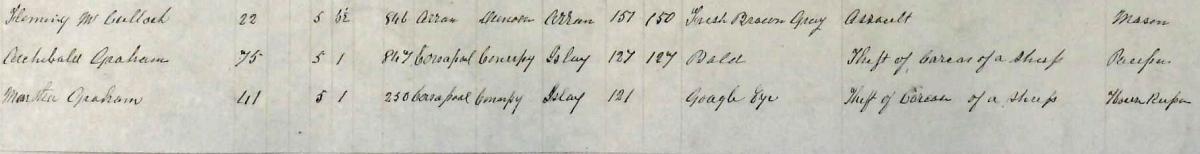 Fleming McCulloch 22 5 846 Arran Arran 151 150 Fresh Brown Gray Assault Mason
Archibald Graham 75 5 1 847 Islay 127 127 Bald Theft of Carcas of a Sheep Pauper
Martha Graham 41 5 1 250 Islay 121 Goagle Eye Theft of Carcas of a Sheep House Keeper